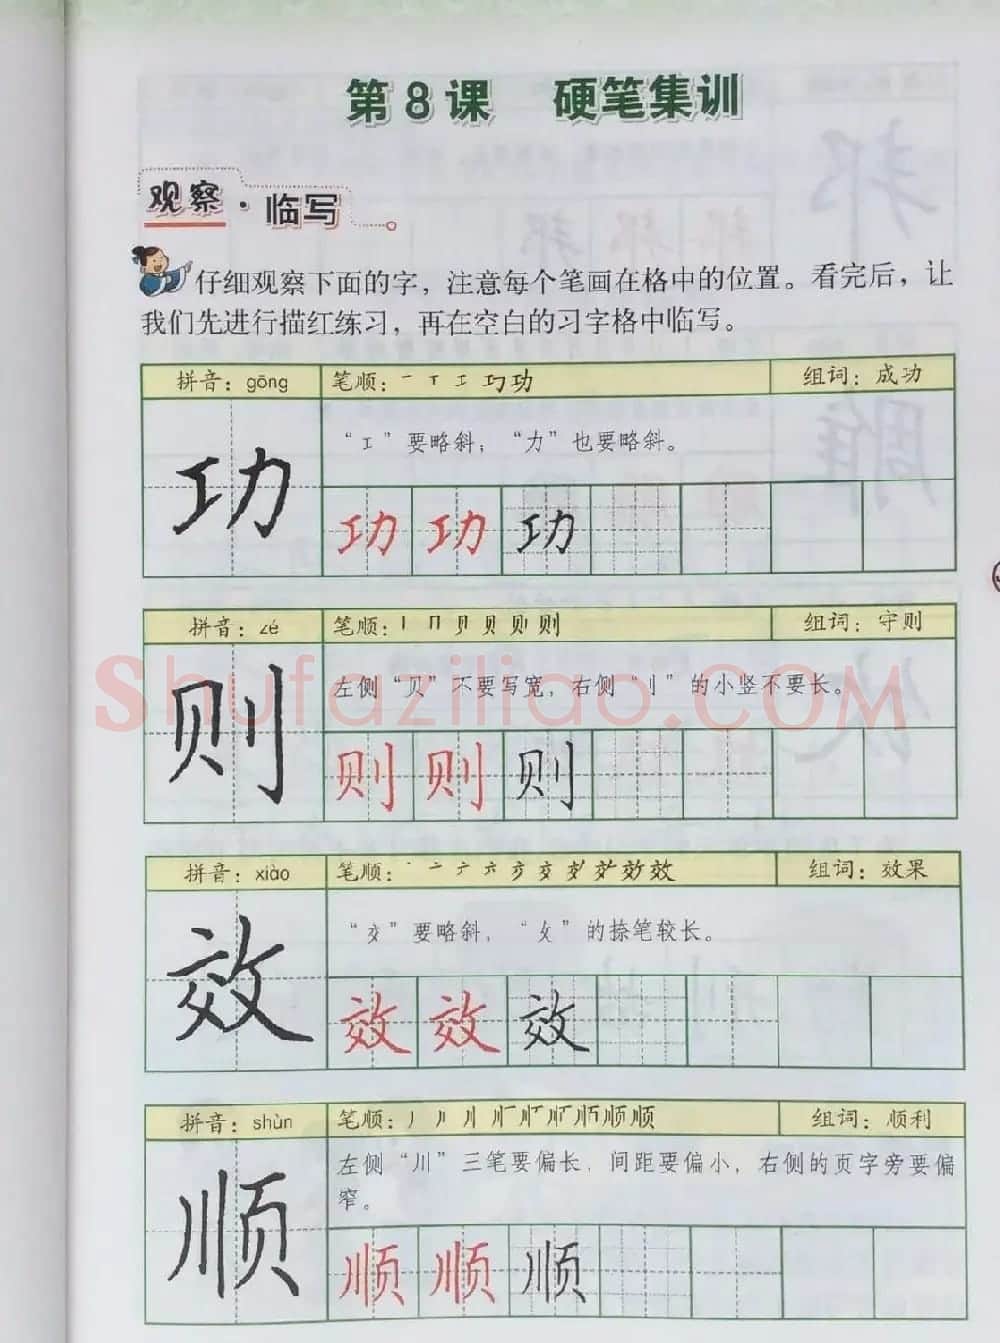 第8课 硬笔集训
观察·临写
仔细观察下面的字，注意每个笔画在格中的位置。看完后，让
我们先进行描红练习，再在空白的习字格中临写。
拼音：gōng 笔顺： 组词：成功
功
“工”要略斜；“力”也要略斜。
功 功 功
拼音：zé 笔顺： 组词：守则
则
左侧“贝”不要写宽，右侧“刂”的小竖不要长。
则 则 则
拼音：xiào 笔顺： 组词：效果
效
“交”要略斜，“攵”的捺笔较长。
效 效 效
拼音：shùn 笔顺： 组词：顺利
顺
左侧“川”三笔要偏长，间距要偏小，右侧的页字旁要偏
窄。
顺 顺 顺
Shufaziliao.com